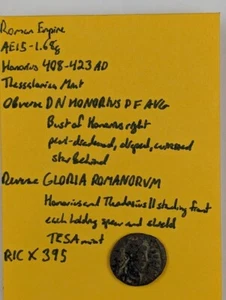 Roman Empire
AE15-1.68g
Honorius 408-423 AD
Thessalonica Mint
Obverse DN HONORIUS PF AVG
Bust of Honorius right
pearl-diademed, draped, cuirassed
star behind
Reverse GLORIA ROMANORVM
Honorius and Theodosius II standing front
each holding spear and shield
TESA mint
RIC X 395